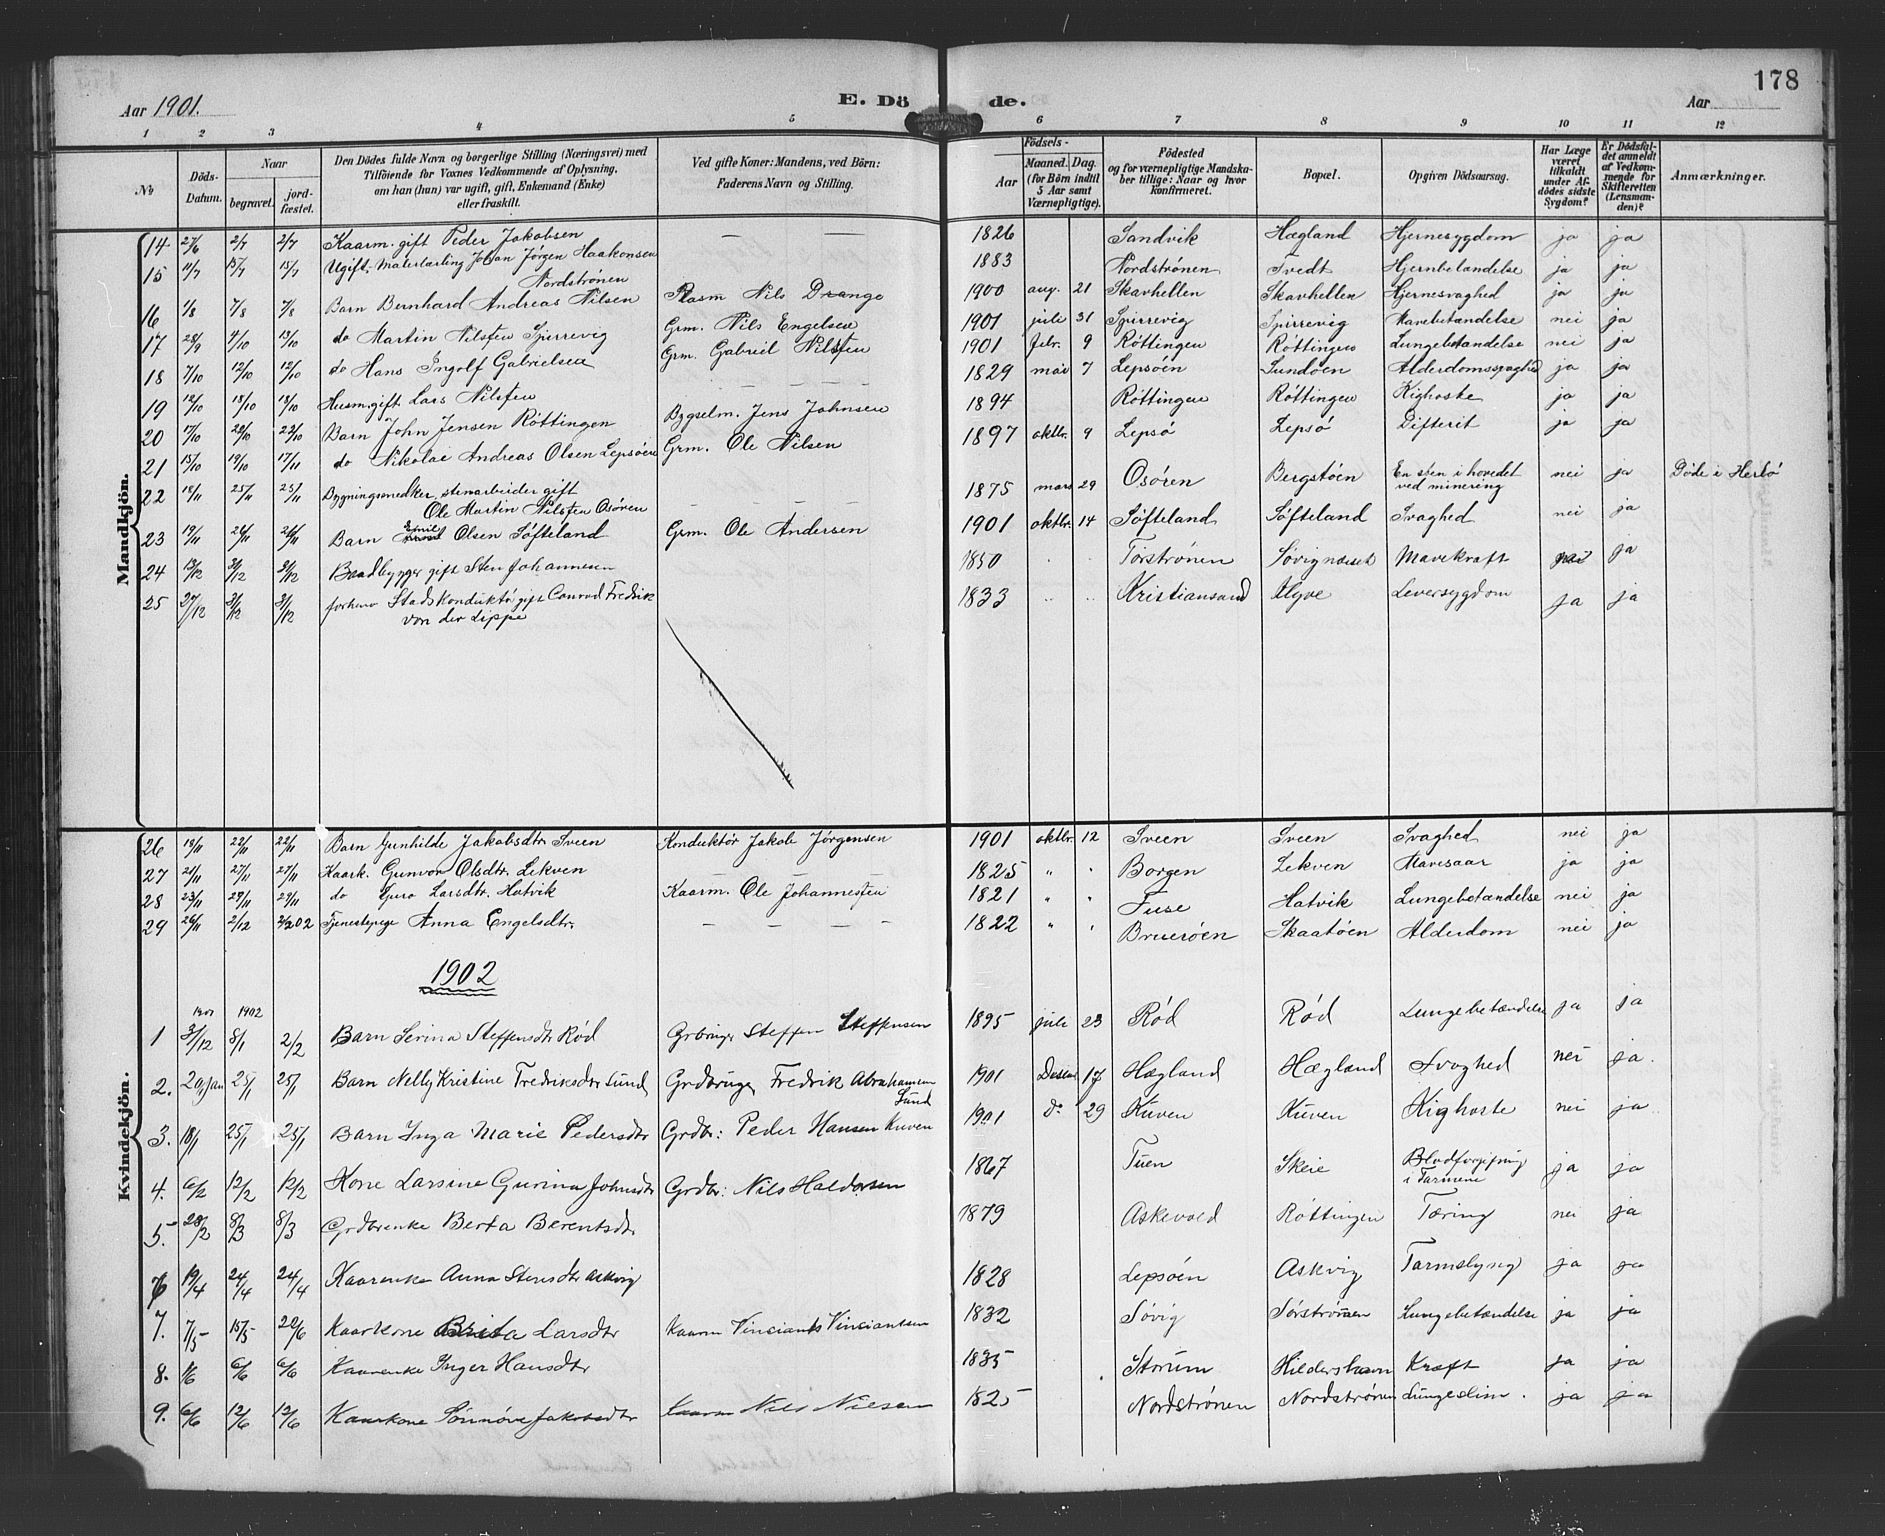 178
Aar 1901.
E. Dö de.
Aar
1 2 3 4 5 6 7 8 9 10 11 12
No
Döds-Datum.
Naar
begravet.
jord-fæstet.
Den Dödes fulde Navn og borgerlige Stilling (Næringsvei) med
Tilföiende for Voxnes Vedkommende af Oplysning,
om han (hun) var ugift, gift, Enkemand (Enke)
eller fraskilt.
Ved gifte Koner: Mandens, ved Börn:
Faderens Navn og Stilling.
Födsels-
Aar
Maaned. Dag.
(for Börn indtil
5 Aar samt
Værnepligtige).
Födested
og for værnepligtige Mandska-
ber tillige: Naar og hvor
konfirmeret.
Bopæl.
Opgiven Dödsaarsag.
Har Læge
været
tilkaldt
under Af-
dödes sidste
Sygdom?
Er Dödsfal-
det anmeldt
af Vedkom-
mende for
Skifteretten
(Lensman-
den)?
Anmærkninger.
Mandkjön.
14 27/6 2/7 2/7 Kaarm. gift Peder Jakobsen — — 1826 Sandvik Hægland Hjernesygdom ja ja
15 11/7 15/7 15/7 Ugift. Malerlærling Johan Jörgen Haakonsen Nordstrønen 1883 Nordstrønen Tvedt Hjernbetændelse ja ja
16 1/8 7/8 7/8 Barn Bernhard Andreas Nilsen Plasm Nils Drange 1900 aug. 21 Skavhellen Skavhellen Hjernesvaghed ja ja
17 28/9 4/10 13/10 do Martin Nilssen Spirrevig Grm. Nils Engelsen 1901 juli 31 Spirrevig Spirrevig Mavebetændelse nei ja
18 7/10 12/10 12/10 do Hans Ingolf Gabrielsen Grm. Gabriel Nilssen 1901 febr. 9 Røttingen Røttingen Lungebetændelse nei ja
19 12/10 18/10 18/10 Husm. gift Lars Nilssen — — — — 1829 mai 7 Lepsøen Sundøen Alderdomssvaghed ja ja
20 17/10 22/10 23/10 Barn John Jensen Røttingen Bygselm. Jens Johnsen 1894 Røttingen Røttingen Kighoste ja ja
21 15/10 19/10 17/11 do Nikolai Andreas Olsen Lepsøen Grm. Ole Nilsen 1897 oktbr. 9 Lepsø Lepsø Difterit ja ja
22 18/11 25/11 25/11 Bygningssnedker, stenarbeider gift
Ole Martin Nilssen Osøren — 1875 mars 29 Osøren Bergstøen En sten i hovedet
ved minering nei ja Døde i Herlö
23 19/11 26/11 26/11 Barn Emil Olsen Søfteland Grm. Ole Andersen 1901 oktbr. 14 Søfteland Søfteland Svaghed nei ja
24 13/12 31/12 31/12 Baadbygger gift Sten Johannesen 1850 Torstrønen Søvignæset Mavekræft ja
25 27/12 31/12 31/12 forhenv Stadskonduktør gift Conrad Fredrik
von der Lippe 1833 Kristiansand Ulyve Leversygdom ja ja
Kvindekjön.
26 18/11 22/11 22/11 Barn Gunhilde Jakobsdtr Sveen Konduktør Jakob Jørgensen 1901 oktbr. 12 Sveen Sveen Svaghed nei ja
27 21/11 27/11 27/11 Kaark. Gunvor Olsdtr. Lekven — — 1825 " " Borgen Lekven Mavesaar ja ja
28 23/11 29/11 29/11 do Guro Larsdtr. Hatvik Kaarm. Ole Johannessen 1821 " " Fuse Hatvik Lungebetændelse nei ja
29 26/11 2/12 2/1202 Tjenestepige Anna Engelsdtr. — — — — 1822 " " Bruerøen Skaatøen Alderdom nei ja
1902
1901 1902
1 31/12 8/1 2/2 Barn Serina Steffensdtr Rød Grbruger Steffen Steffensen 1895 juli 23 Rød Rød Lungebetændelse ja ja
2. 20 Jan 25/1 25/1 Barn Nelly Kristine Fredriksdtr Lund Grdbruger Fredrik Abrahamsen
Lund 1901 Desem 17 Hægland Hægland Svaghed nei ja.
3. 18/1 25/1 25/1 Barn Inga Marie Pedersdtr Grdbr: Peder Hansen Kuven 1901 Do 29 Kuven Kuven Kighoste nei ja
4. 6/2 12/2 12/2 Kone Larsine Gurina Johnsdtr Grdbr: Nils Haldorsen 1867 Tuen Skeie Blodforgiftning
i Tarmene ja ja
5. 28/2 8/3 8/3 Grdbrenke Berta Berentsdtr 1879 Askevold Røttingen Tæring nei ja
6 19/4 24/4 24/4 Kaarenke Anna Stensdtr Askvig 1828 Lepsøen Askvig Tarmslyng ja ja
7. 7/5 15/5 22/6 Kaarkone Brita Larsdtr Kaarm Vinciants Vinciantsen 1832 Søvig Sørstrønen Lungebetændelse ja ja
8. 1/6 6/6 6/6 Kaarenke Inger Hansdtr 1835 Storum Hildershavn Kræft ja ja
9. 6/6 12/6 12/6 Kaarkone Sønnøve Jakobsdtr Kaarm Nils Nilsen 1825 Nordstrønen Nordstrønen Lungeslim. ja ja